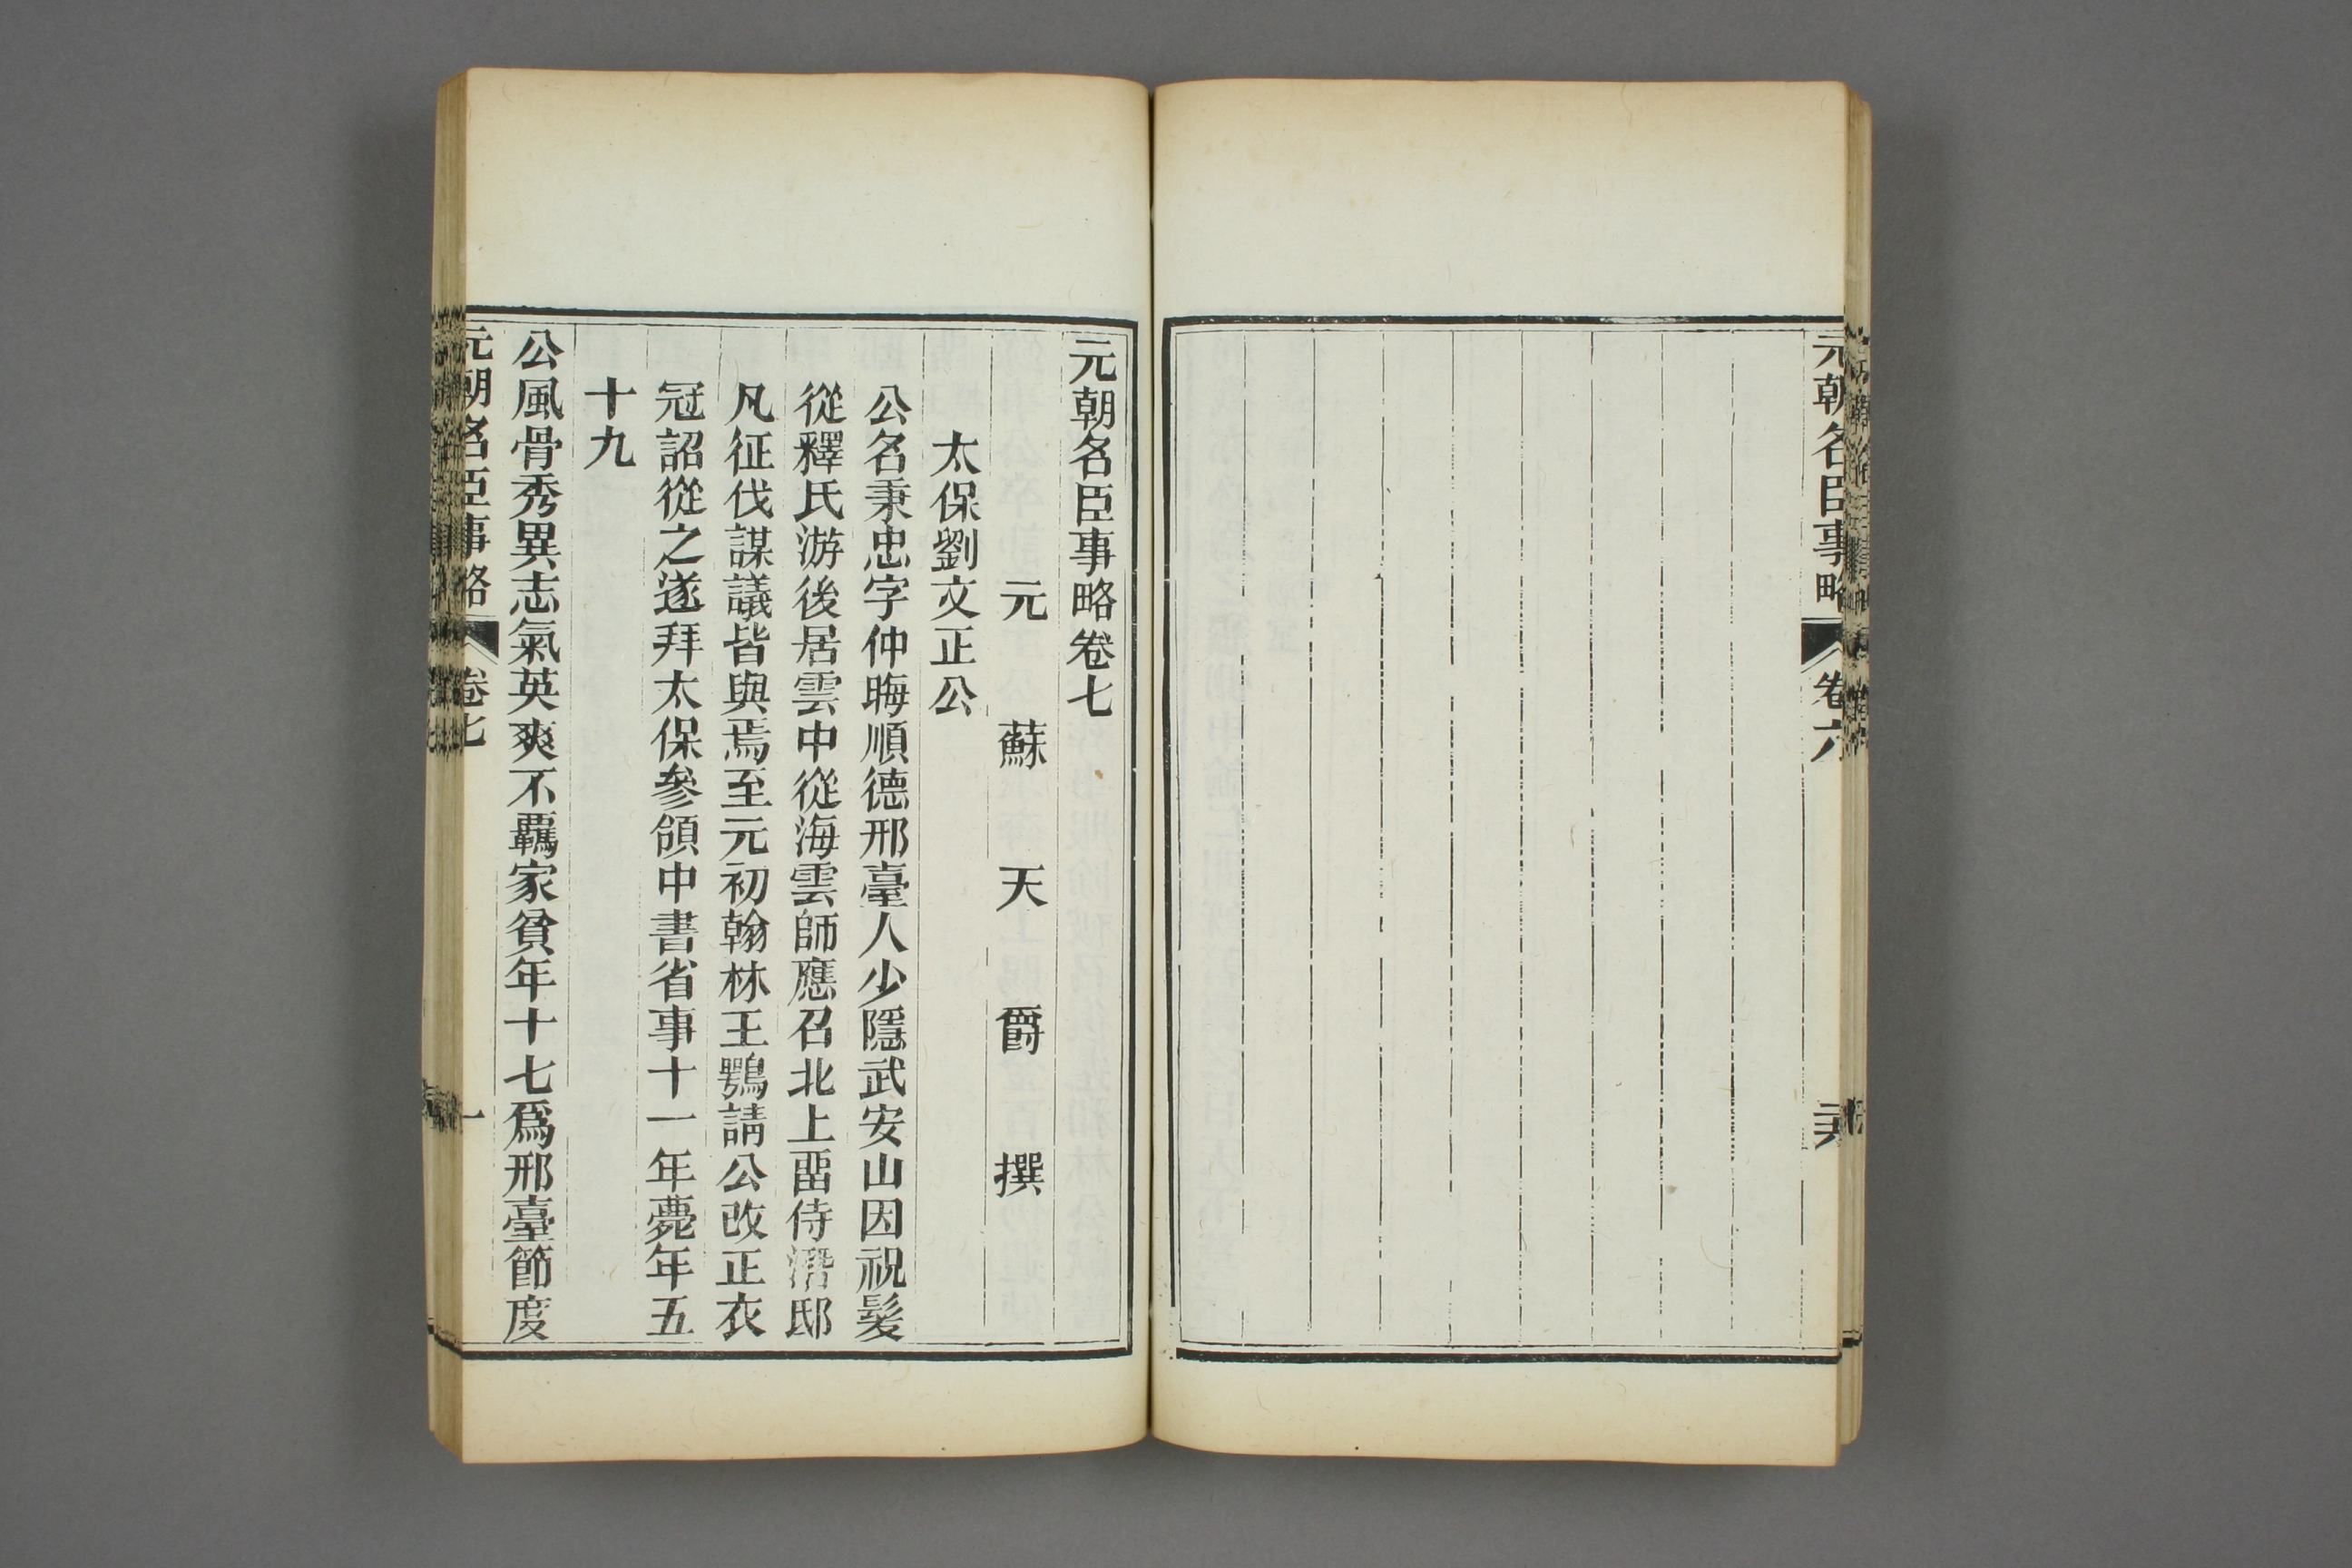 元朝名臣事略 卷六
元朝名臣事略卷七
元 蘇 天 爵 撰
太保劉文正公
公名秉忠字仲晦順德邢臺人少隱武安山因祝髮
從釋氏游後居雲中從海雲師應召北上畱侍潛邸
凡征伐謀議皆與焉至元初翰林王鶚請公改正衣
冠詔從之遂拜太保參領中書省事十一年薨年五
十九
公風骨秀異志氣英爽不羈家貧年十七爲邢臺節度
元朝名臣事略 卷七 一